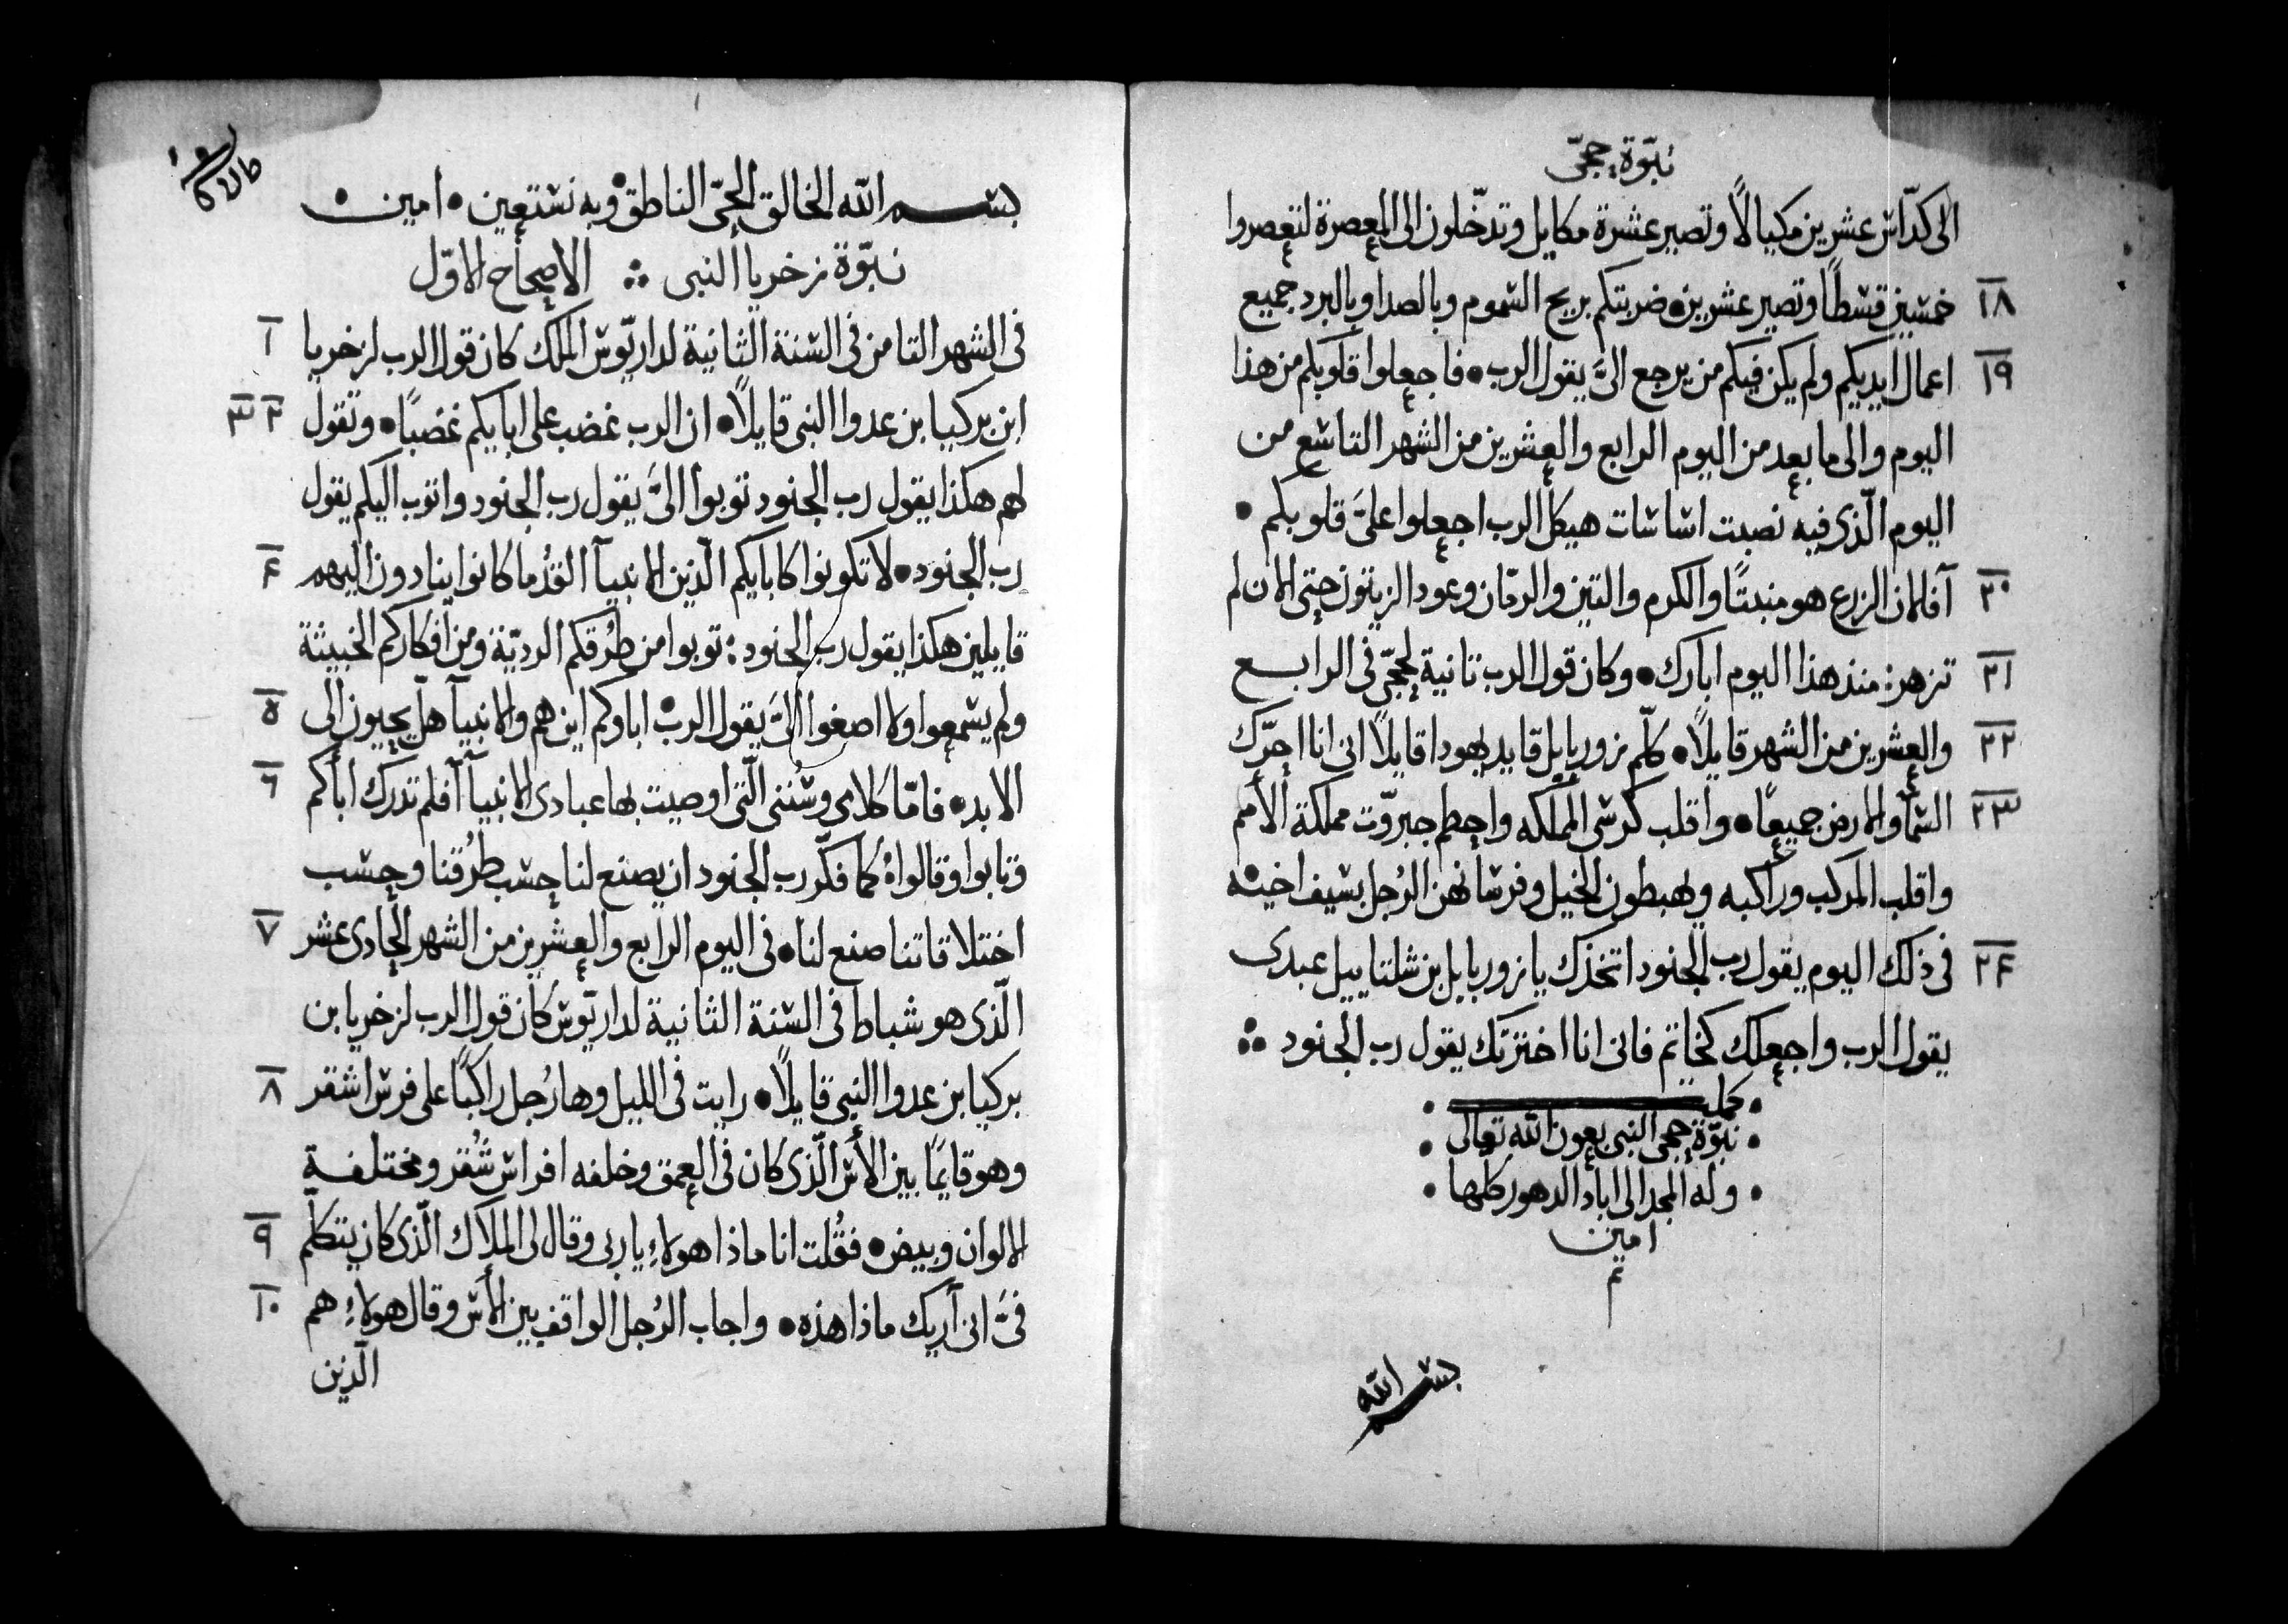 نبّوة حجّى
الى كدّاس عشرين مكيالاً وتصير عشرة مكايل وتدخّلون الى المعصرة لتعصروا
١٨ خمسين قسطاً وتصير عشرين • ضربتكم بريح السموم وبالصدا وبالبرد جميع
١٩ اعمال ايديكم ولم يكن فيكم من يرجع الىَّ يقول الرب • فاجعلوا قلوبكم من هذا
اليوم والى ما بعد من اليوم الرابع والعشرين من الشهر التاسع من
اليوم الّذى فيه نصبت اساسات هيكل الرب اجعلوا علىَّ قلوبكم •
٢٠ آفللان الزرع هو منبتًا والكرم والتين والرمّان وعود الزيتون حتى الان لم
٢١ تزهر : منذ هذا اليوم ابارك • وكان قول الرب ثانية لحجّى فى الرابع
٢٢ والعشرين من الشهر قايلاً • كلّم زوربابل قايد يهودا قايلاً انى انا احرّك
٢٣ السما والارض جميعًا • واقلب كرسى المملكه واحطم جبروّت مملكة الأمم
واقلب المركب وراكبه ويهبطون الخيل وفرسانهن الرُجل بسيف اخيه
٢٤ فى ذلك اليوم يقول رب الجنود اتخذك يا زوربابل بن شلتاييل عبدى
يقول الرب واجعلك كخاتم فانى انا اخترتك يقول رب الجنود
• كملت •
• نبّوة حجى النبى بعون الله تعالى •
• وله المجد الى اباد الدهور كلها •
امين
تم
بسم الله
بسم الله الخالق الحىّ الناطق وبه نستعين • امين •
نبّوة زخريا النبى الاصحاح الاوّل
١ فى الشهر الثامن فى السنة الثانية لداريّوس الملك كان قول الرب لزخريا
٢ ٣ ابن بركيا بن عدوا النبى قايلاً • ان الرب غضب على ابايكم غضبًا • وتقول
لهم هكذا يقول رب الجنود توبوا الىَّ يقول رب الجنود واتوب اليكم يقول
٤ رب الجنود • لا تكونوا كابايكم الّذين الانبيآ القُدُما كانوا ينادون اليهم
قايلين هكذا يقول رب الجنود : توبوا من طُرقكم الرديّة ومن افكاركم الخبيثة
٥ ولم يسمعوا ولا اصغوا الىَّ يقول الرب • اباوكم اين هم والانبيآ هل يحيون الى
٦ الابد • فامّا كلامى وسُننى الّتى اوصيت بها عبادى الانبيآ آفلم تدرك اباكم
وتابوا وقالوا كما فكّر رب الجنود ان يصنع لنا حسب طرُقنا وحسب
٧ اختلاقاتنا صنع لنا • فى اليوم الرابع والعشرين من الشهر الحادى عشر
الّذى هو شباط فى السنة الثانية لداريّوس كان قول الرب لزخريا بن
٨ بركيا بن عدوا النبى قايلاً • رايت فى الليل وها رُجل راكبًا على فرس اشقر
وهو قايمًا بين الأس الّذى كان فى العمق وخلفه افراس شُقر ومختلفة
٩ الالوان وبيض • فقُلت انا ماذا هولاءِ يا ربى وقال لى الملاك الّذى كان يتكلّم
١٠ فىَّ انى آريك ماذا هذه • واجاب الرُجل الواقف بين الأس وقال هولاءِ هم
الّذين